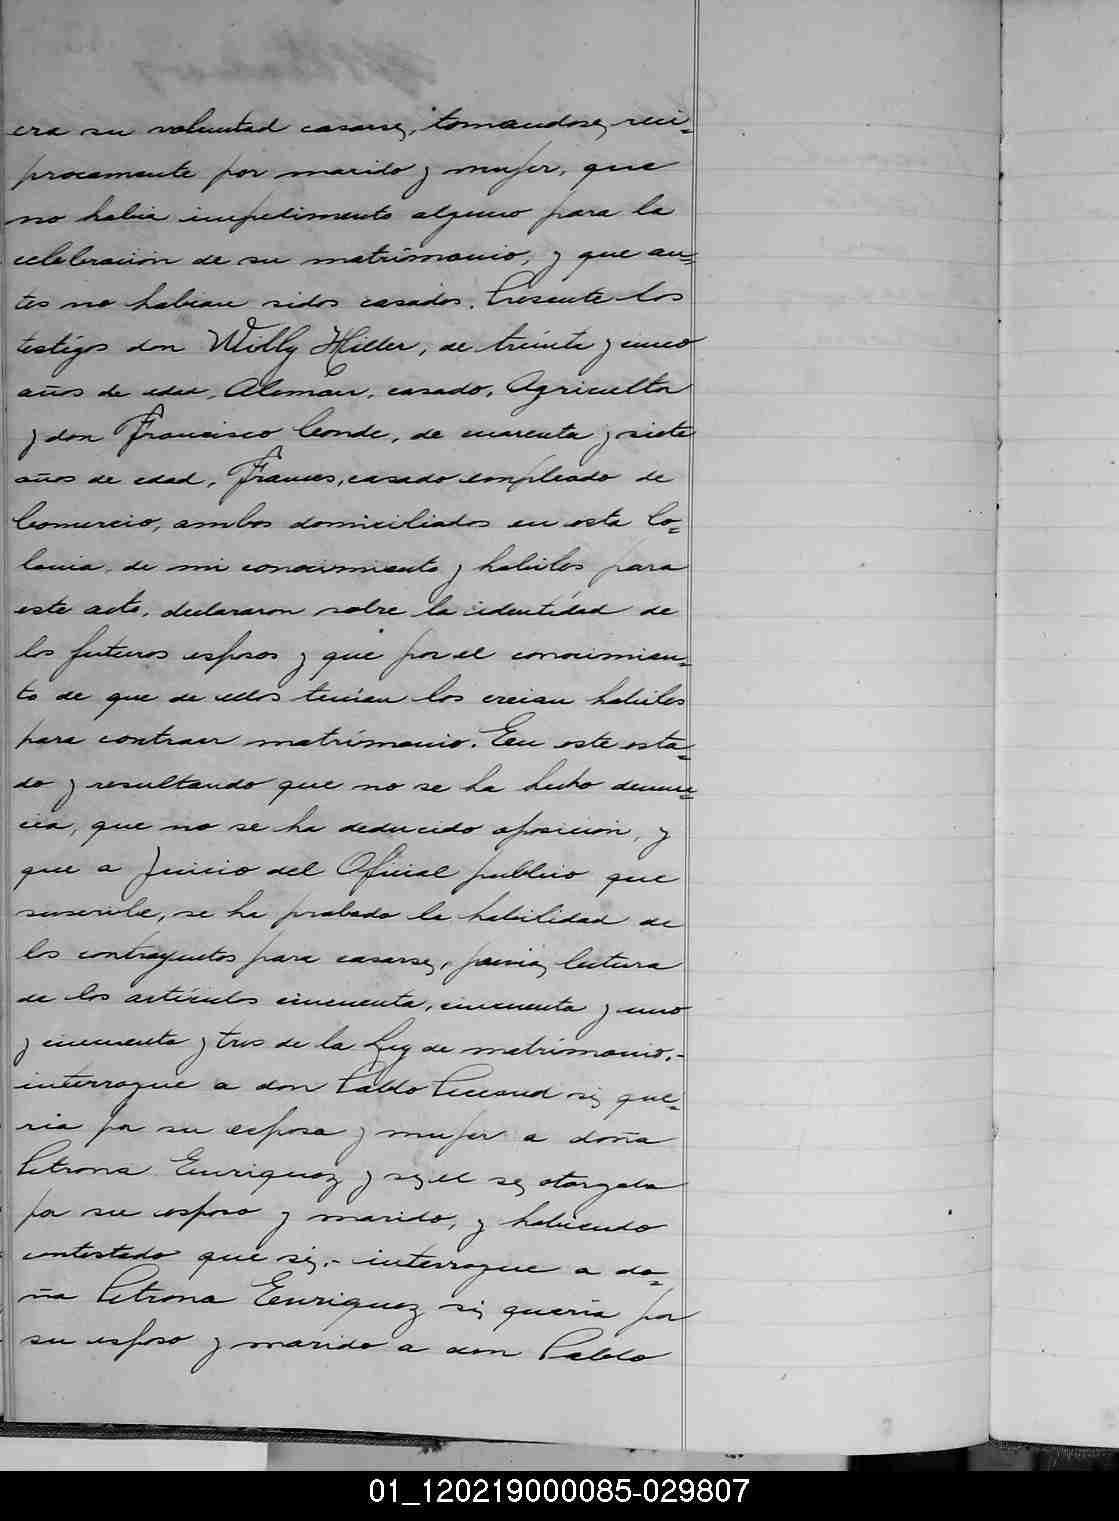 era su voluntad casarse, tomandose, reci=
procamente por marido y mujer, que
no habia impedimento alguno para la
celebracion de su matrimonio, y que an=
tes no habian sidos casados. Presente los
testigos don Willy Hiller, de treinta y cinco
años de edad, Aleman, casado, Agricultor
y don Francisco Conde, de cuarenta y siete
años de edad, Frances, casado empleado de
Comercio, ambos domiciliados en esta Co=
lonia, de mi conocimiento y habiles para
este acto, declararon sobre la identidad de
los futuros esposos y que por el conocimien=
to de que de ellos tenian los creian habiles
para contraer matrimonio. En este esta=
do y resultando que no se ha hecho denun=
cia, que no se ha deducido oposicion, y
que a juicio del Oficial publico que
suscribe, se ha probado la habilidad de
los contrayentes para casarse, previa lectura
de los articulos cincuenta, cincuenta y uno
y cincuenta y tres de la Ley de matrimonio.-
interrogue a don Pablo si que=
ria por su esposa y mujer a doña
Petrona Enriquez y si el se otorgaba
por su esposo y marido, y habiendo
contestado que si,- interrogue a do=
ña Petrona Enriquez si queria por
su esposo y marido a don Pablo
01_120219000085-029807